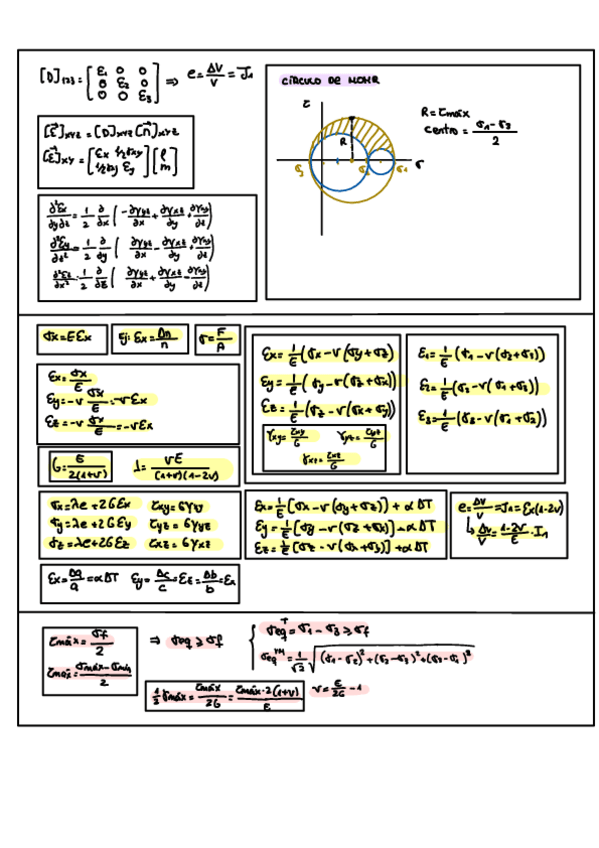 [D]₁₂₃ = [ε₁ 0 0; 0 ε₂ 0; 0 0 ε₃] ⇒ e = ΔV/V = J₁
[ε⃗]xyz = [D]xyz [n⃗]xyz
[ε⃗]xy = [εx ½γxy; ½γxy εy] [l; m]
∂²εx/∂y∂z = 1/2 ∂/∂x (-∂γyz/∂x + ∂γxz/∂y + ∂γxy/∂z)
= 1/2 ∂/∂y (∂γyz/∂x - ∂γxz/∂y + ∂γxy/∂z)
= 1/2 ∂/∂z (∂γyz/∂x + ∂γxz/∂y - ∂γxy/∂z)
CÍRCULO DE MOHR
τ
R
σ₃ σ₂ σ₁ σ
R = τmáx
centro = (σ₁ - σ₃)/2
σx = E εx
Ej: εx = Δn/n
σ = F/A
εx = σx/E
εy = -ν σx/E = -ν εx
εz = -ν σx/E = -ν εx
G = E/2(1+ν)
λ = νE/(1+ν)(1-2ν)
εx = 1/E (σx - ν(σy + σz))
εy = 1/E (σy - ν(σz + σx))
εz = 1/E (σz - ν(σx + σy))
γxy = τxy/G γyz = τyz/G
γxz = τxz/G
ε₁ = 1/E (σ₁ - ν(σ₂ + σ₃))
ε₂ = 1/E (σ₂ - ν(σ₁ + σ₃))
ε₃ = 1/E (σ₃ - ν(σ₁ + σ₂))
σx = λe + 2Gεx τxy = Gγxy
σy = λe + 2Gεy τyz = Gγyz
σz = λe + 2Gεz τxz = Gγxz
εx = 1/E [σx - ν(σy + σz)] + αΔT
εy = 1/E [σy - ν(σz + σx)] + αΔT
εz = 1/E [σz - ν(σx + σy)] + αΔT
e = ΔV/V = J₁ = εx(1-2ν)
↳ ΔV/V = (1-2ν)/E · I₁
εx = Δa/a = αΔT εy = Δc/c = εz = Δb/b = εx
τmáx = σf/2
τmáx = (σmáx - σmín)/2
⇒ σeq ≥ σf
σeqᵀ = σ₁ - σ₃ ≥ σf
σeqⱽᴹ = 1/√2 √((σ₁-σ₂)² + (σ₂-σ₃)² + (σ₃-σ₁)²)
½ γmáx = τmáx/2G = τmáx·2(1+ν)/E
ν = E/2G - 1